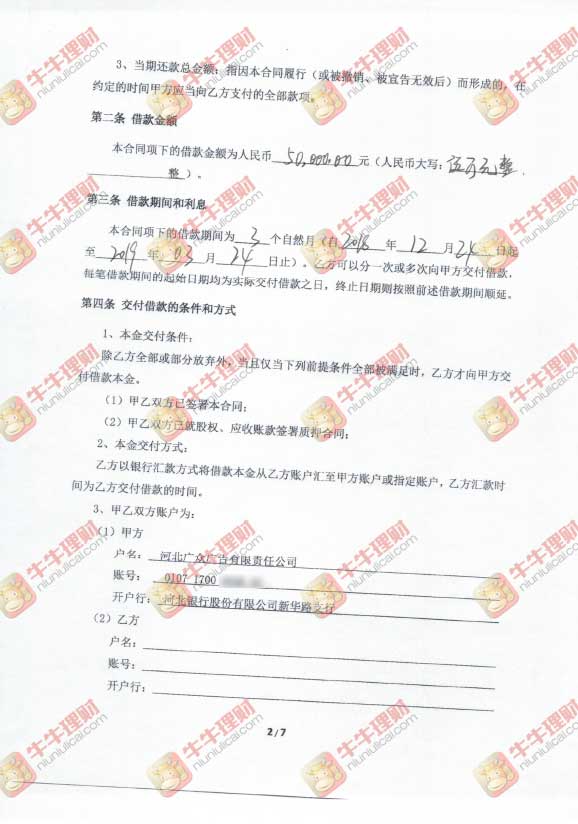 3、当期还款总金额：指因本合同履行（或被撤销、被宣告无效后）而形成的，在
约定的时间甲方应当向乙方支付的全部款项。
第二条 借款金额
本合同项下的借款金额为人民币 50,000.00 元（人民币大写：伍万元整
整 ）。
第三条 借款期间和利息
本合同项下的借款期间为 3 个自然月（自 2018 年 12 月 24 日起
至 2019 年 03 月 24 日止）。乙方可以分一次或多次向甲方交付借款，
每笔借款期间的起始日期均为实际交付借款之日，终止日期则按照前述借款期间顺延。
第四条 交付借款的条件和方式
1、本金交付条件：
除乙方全部或部分放弃外，当且仅当下列前提条件全部被满足时，乙方才向甲方交
付借款本金。
（1）甲乙双方已签署本合同；
（2）甲乙双方已就股权、应收账款签署质押合同；
2、本金交付方式：
乙方以银行汇款方式将借款本金从乙方账户汇至甲方账户或指定账户，乙方汇款时
间为乙方交付借款的时间。
3、甲乙双方账户为：
（1）甲方
户名：河北广众广告有限责任公司
账号：0107 1700
开户行：河北银行股份有限公司新华路支行
（2）乙方
户名：
账号：
开户行：
2/7
牛牛理财
niuniulicai.com